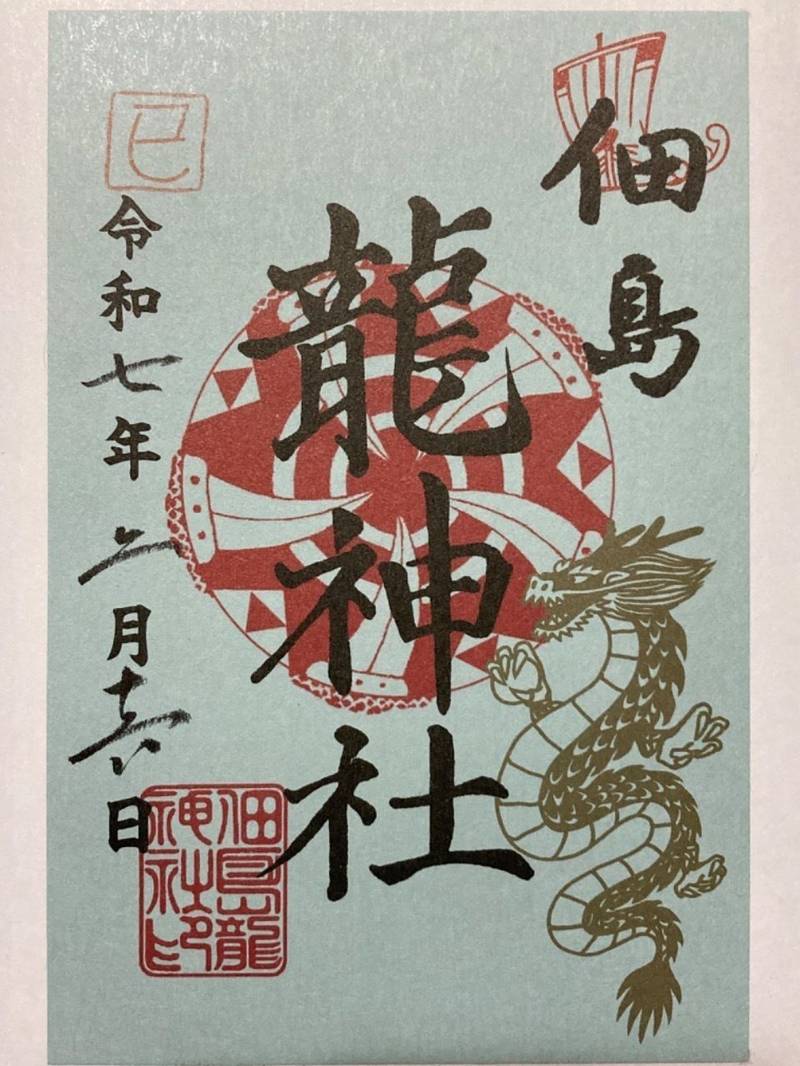 佃島
龍神社
巳
令和七年二月十六日
佃島龍
神社印